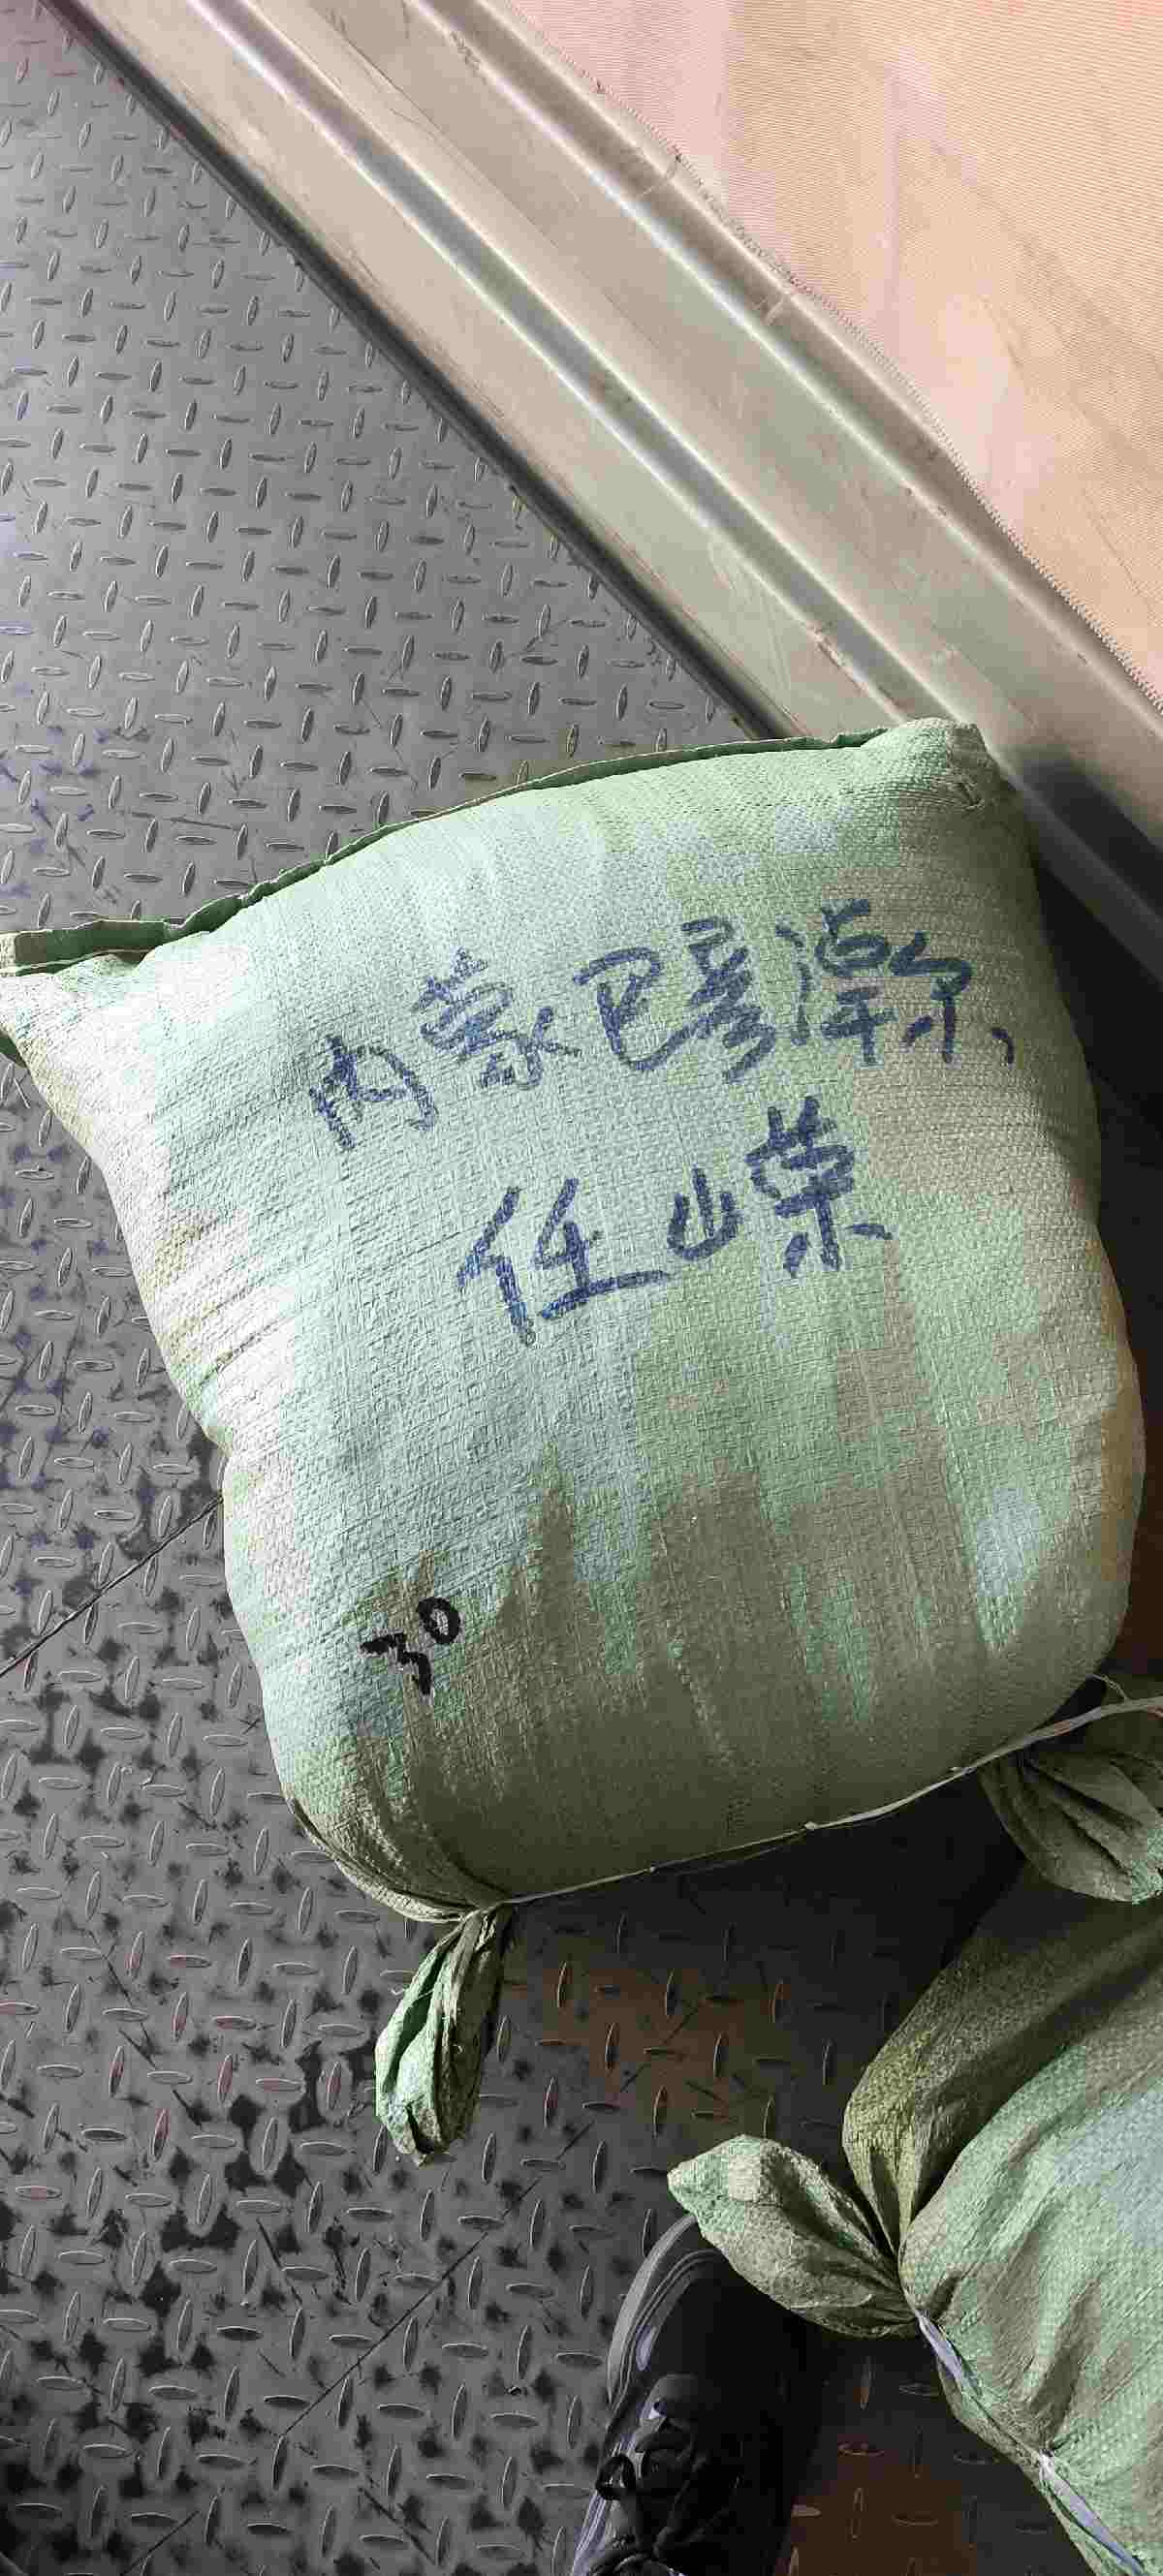 内蒙巴彦淖尔
任山荣
30